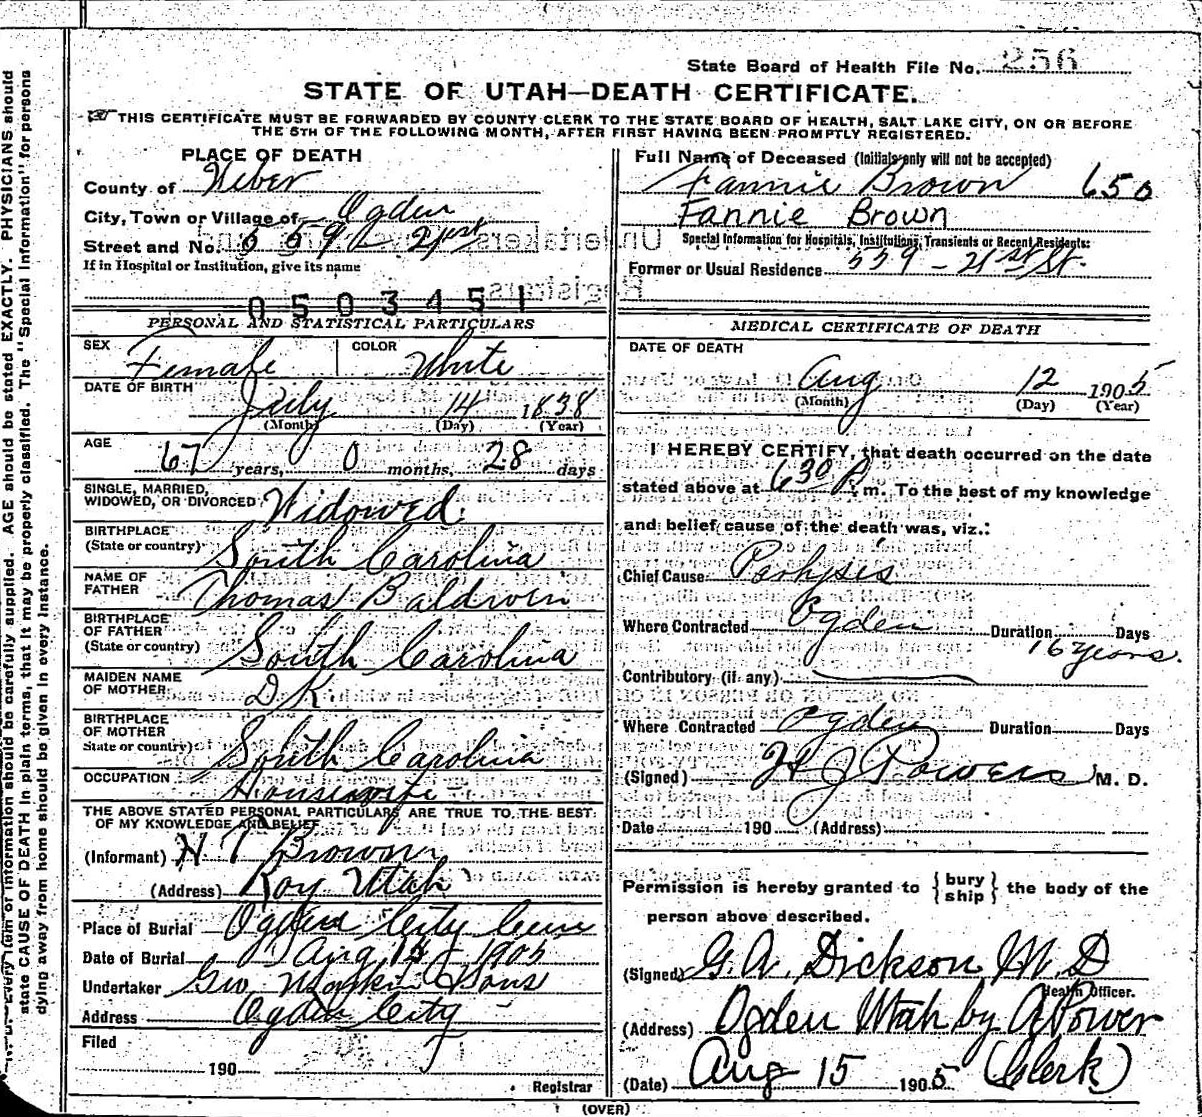 State Board of Health File No. 256
STATE OF UTAH—DEATH CERTIFICATE.
THIS CERTIFICATE MUST BE FORWARDED BY COUNTY CLERK TO THE STATE BOARD OF HEALTH, SALT LAKE CITY, ON OR BEFORE
THE 5TH OF THE FOLLOWING MONTH, AFTER FIRST HAVING BEEN PROMPTLY REGISTERED.
PLACE OF DEATH
County of Weber
City, Town or Village of Ogden
Street and No. 559 21st
If in Hospital or Institution, give its name
0503451
PERSONAL AND STATISTICAL PARTICULARS
SEX Female COLOR White
DATE OF BIRTH
July 14 1838
(Month) (Day) (Year)
AGE
67 years, 0 months, 28 days
SINGLE, MARRIED,
WIDOWED, OR DIVORCED Widowed
BIRTHPLACE
(State or country) South Carolina
NAME OF
FATHER Thomas Baldwin
BIRTHPLACE
OF FATHER
(State or country) South Carolina
MAIDEN NAME
OF MOTHER D K
BIRTHPLACE
OF MOTHER
State or country) South Carolina
OCCUPATION Housewife
THE ABOVE STATED PERSONAL PARTICULARS ARE TRUE TO THE BEST
OF MY KNOWLEDGE AND BELIEF
(Informant) H T Brown
(Address) Roy Utah
Place of Burial Ogden City Cem
Date of Burial Aug 1905
Undertaker Geo. & Sons
Address Ogden City
Filed
190
Registrar
Full Name of Deceased (Initials only will not be accepted)
Fannie Brown 650
Fannie Brown
Special Information for Hospitals, Institutions, Transients or Recent Residents:
Former or Usual Residence 559 - 21st St.
MEDICAL CERTIFICATE OF DEATH
DATE OF DEATH
Aug 12 1905
(Month) (Day) (Year)
I HEREBY CERTIFY, that death occurred on the date
stated above at 6 30 P. m. To the best of my knowledge
and belief cause of the death was, viz.:
Chief Cause
Where Contracted Ogden Duration Days
16 years.
Contributory (if any)
Where Contracted Ogden Duration Days
(Signed) H J Powers M. D.
Date 190 (Address)
Permission is hereby granted to { bury ship } the body of the
person above described.
(Signed) G. A. Dickson M D
Health Officer.
(Address) Ogden Utah by A Power
(Date) Aug 15 1905 (Clerk)
(OVER)
Every item of information should be carefully supplied. AGE should be stated EXACTLY. PHYSICIANS should
state CAUSE OF DEATH in plain terms, that it may be properly classified. The "Special Information" for persons
dying away from home should be given in every instance.